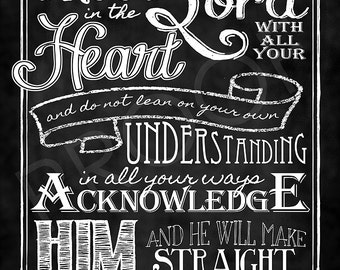 in the Lord
WITH ALL YOUR
Heart
and do not lean on your own
UNDERSTANDING
in all your ways
ACKNOWLEDGE
HIM AND HE WILL MAKE
STRAIGHT